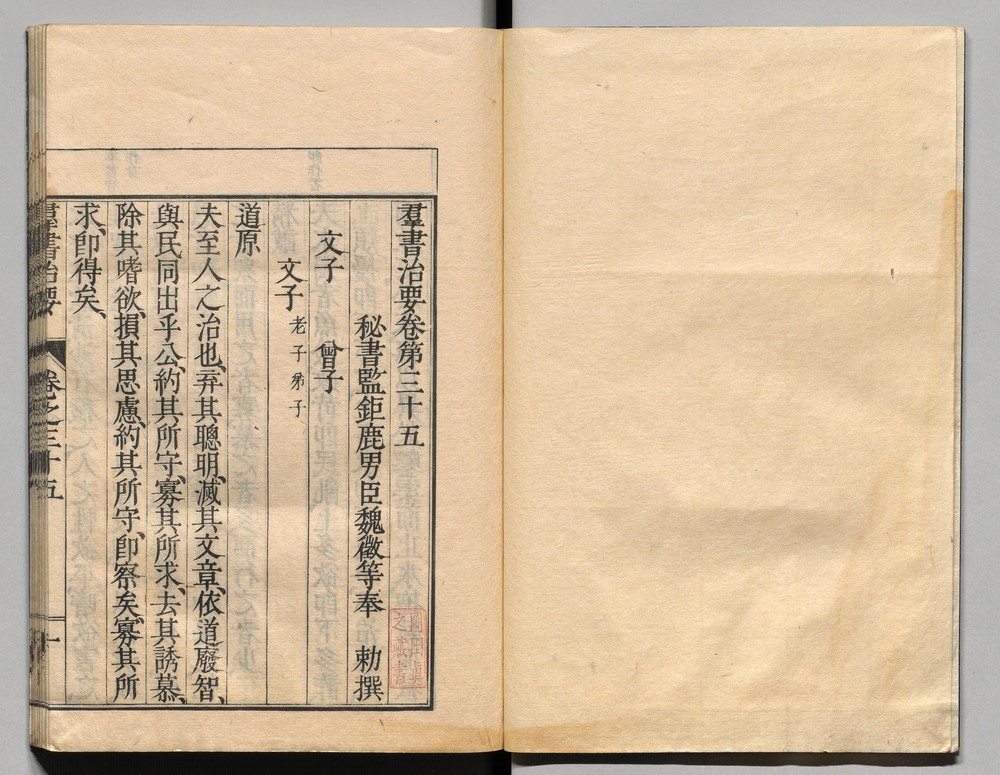 羣書治要卷第三十五
秘書監鉅鹿男臣魏徵等奉 勅撰
文子 曾子
文子 老子弟子
道原
夫至人之治也、弃其聰明、滅其文章、依道廢智、
與民同出乎公、約其所守、寡其所求、去其誘慕、
除其嗜欲、損其思慮、約其所守、即察矣、寡其所
求、即得矣、
羣書治要 卷之三十五 一
之藏書